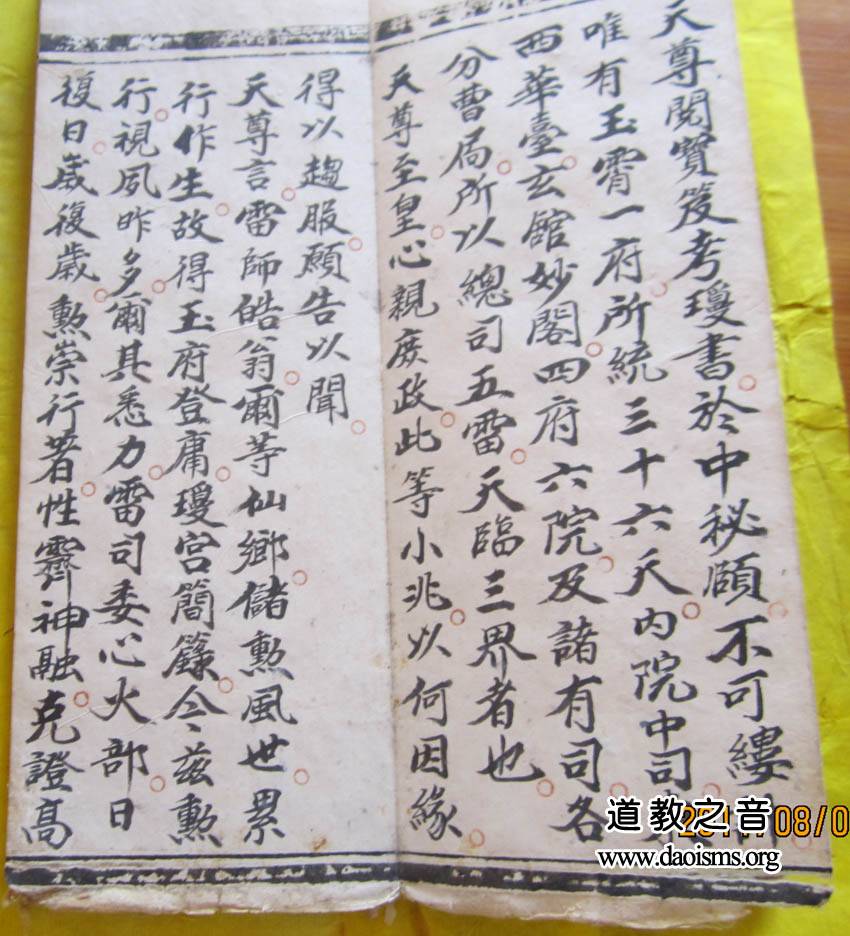 天尊閱寶笈考瓊書於中秘頋不可縷
唯有玉霄一府所統三十六天内院中司
西華臺玄館妙閣四府六院及諸有司各
分曹局所以總司五雷天臨三界者也
天尊至皇心親庶政此等小兆以何因緣
得以趨服願告以聞
天尊言雷師皓翁爾等仙鄉儲勲風世累
行作生故得玉府登庸瓊宫簡籙令兹勲
行視夙昨多爾其悉力雷司委心火部日
復日歲復歲勲崇行著性霽神融克證高
道教之音
www.daoisms.org